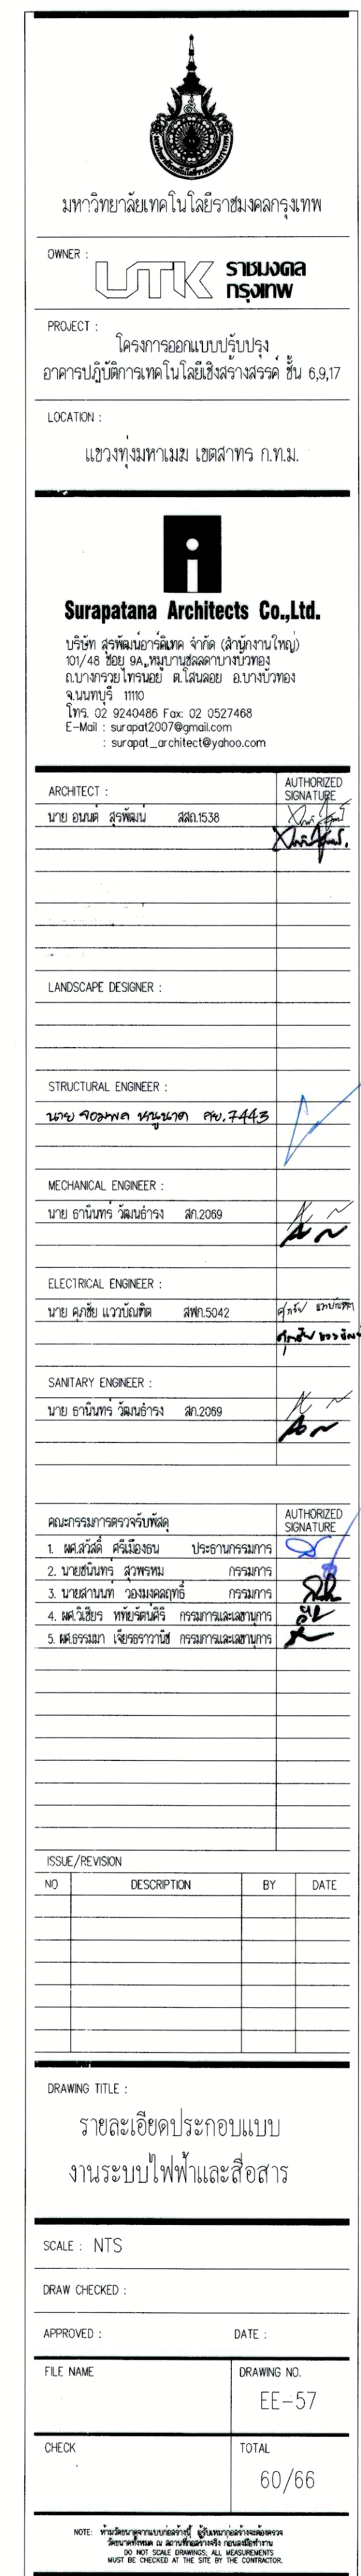 มหาวิทยาลัยเทคโนโลยีราชมงคลกรุงเทพ
OWNER :
UTK ราชมงคล
กรุงเทพ
PROJECT :
โครงการออกแบบปรับปรุง
อาคารปฏิบัติการเทคโนโลยีเชิงสร้างสรรค์ ชั้น 6,9,17
LOCATION :
แขวงทุ่งมหาเมฆ เขตสาทร ก.ท.ม.
Surapatana Architects Co.,Ltd.
บริษัท สุรพัฒน์อาร์คิเทค จำกัด (สำนักงานใหญ่)
101/48 ซอย 9A,หมู่บ้านชลลดาบางบัวทอง
ถ.บางกรวยไทรน้อย ต.โสนลอย อ.บางบัวทอง
จ.นนทบุรี 11110
โทร. 02 9240486 Fax: 02 0527468
E-Mail : surapat2007@gmail.com
: surapat_architect@yahoo.com
ARCHITECT :
AUTHORIZED
SIGNATURE
นาย อนนต์ สุรพัฒน์ สสถ.1538
LANDSCAPE DESIGNER :
STRUCTURAL ENGINEER :
นาย 7443
MECHANICAL ENGINEER :
นาย ธานินทร์ วัฒนธำรง สก.2069
ELECTRICAL ENGINEER :
นาย ศุภชัย แววบัณฑิต สฟก.5042
SANITARY ENGINEER :
นาย ธานินทร์ วัฒนธำรง สก.2069
คณะกรรมการตรวจรับพัสดุ
AUTHORIZED
SIGNATURE
1. ผศ.สวัสดิ์ ศรีเมืองธน ประธานกรรมการ
2. นายชนินทร์ สุวพรหม กรรมการ
3. นายสานนท์ วองมงคลฤทธิ์ กรรมการ
4. ผศ.วิเชียร หทัยรัตน์ศิริ กรรมการและเลขานุการ
5. ผศ.ธรรมมา เจียรธราวานิช กรรมการและเลขานุการ
ISSUE/REVISION
NO DESCRIPTION BY DATE
DRAWING TITLE :
รายละเอียดประกอบแบบ
งานระบบไฟฟ้าและสื่อสาร
SCALE : NTS
DRAW CHECKED :
APPROVED : DATE :
FILE NAME DRAWING NO.
EE-57
CHECK TOTAL
60/66
NOTE: ห้ามวัดขนาดจากแบบก่อสร้างนี้ ผู้รับเหมาก่อสร้างจะต้องตรวจ
วัดขนาดทั้งหมด ณ สถานที่ก่อสร้างจริง ก่อนลงมือทำงาน
DO NOT SCALE DRAWINGS; ALL MEASUREMENTS
MUST BE CHECKED AT THE SITE BY THE CONTRACTOR.